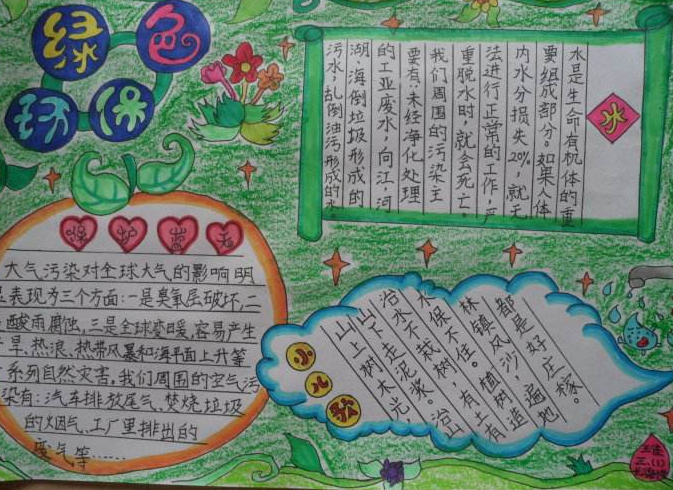 绿色
环保
水
水是生命有机体的重
要组成部分。如果人体
内水分损失20%,就无
法进行正常的工作,严
重脱水时,就会死亡。
我们周围的污染主
要有:未经净化处理
的工业废水,向江,河
湖,海倒垃圾形成的
污水,乱倒油污形成的水
保护蓝天
大气污染对全球大气的影响明
显表现为三个方面:一是臭氧层破坏,二
是酸雨腐蚀,三是全球变暖,容易产生
干旱,热浪,热带风暴和海平面上升等
一系列自然灾害,我们周围的空气污
染有:汽车排放尾气、焚烧垃圾
的烟气、工厂里排出的
废气等……
小儿歌
山上树木光,
山下走泥浆。治山
治水不栽树,有土有
水保不住。植树造
林镇风沙,遍地
都是好庄稼。